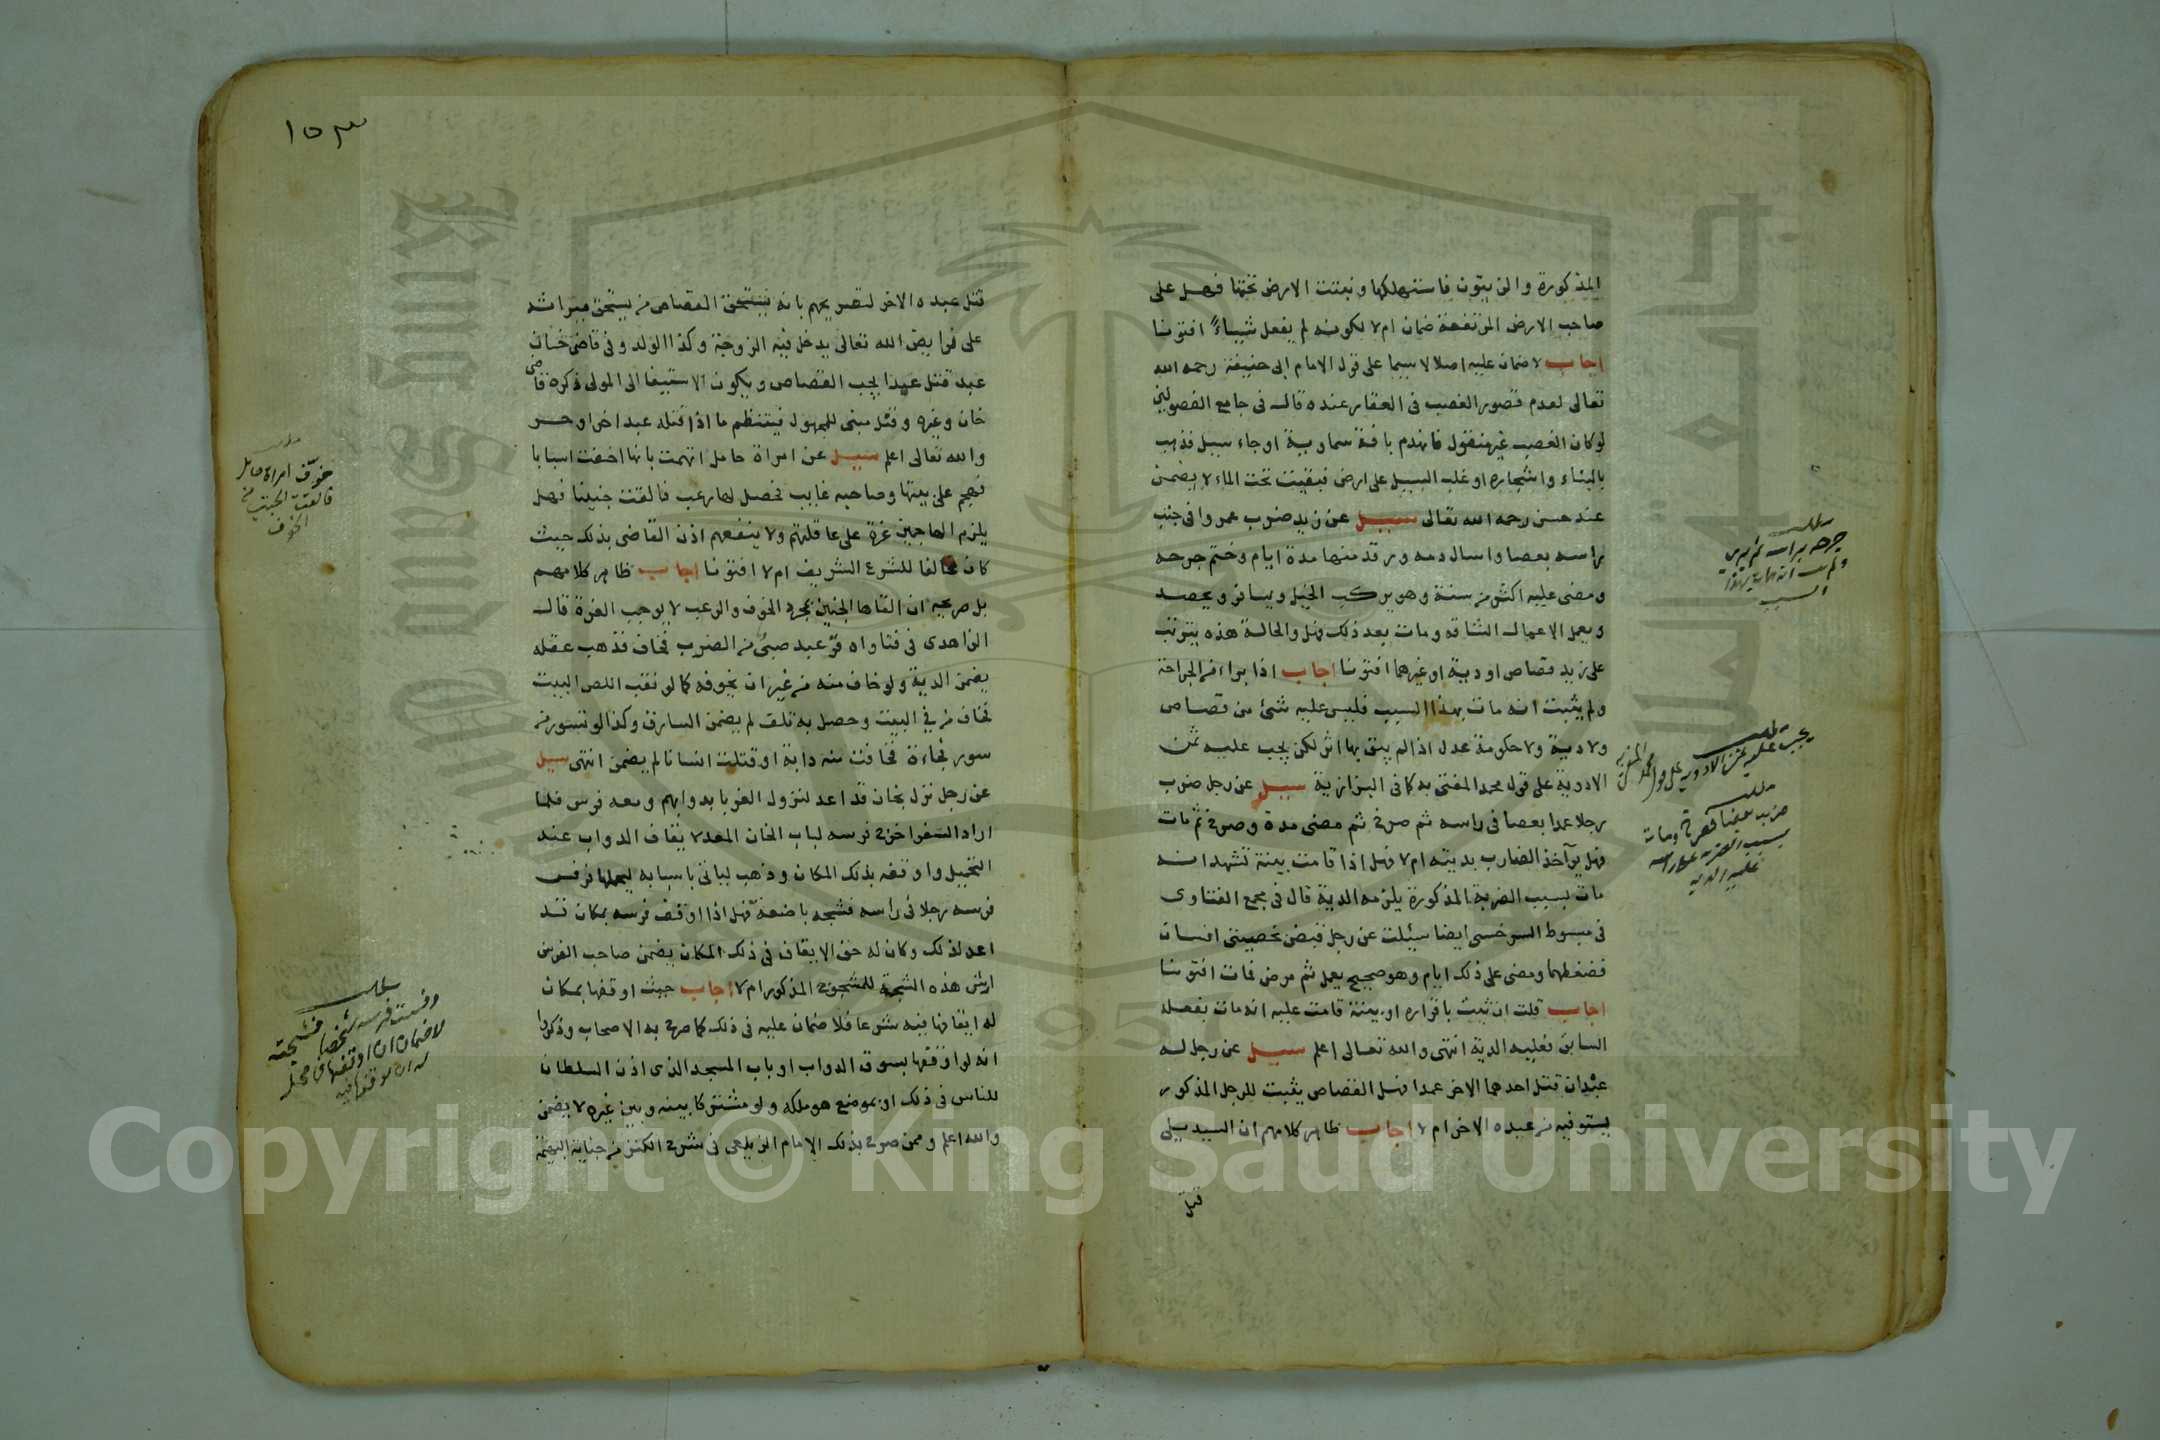 المذكورة والزيتون فاستهلكها ونبتت الارض تحتها فهل على
صاحب الارض المرتفعة ضمان ام لا لكونه لم يفعل شيياً افتونا
اجاب لا ضمان عليه اصلا لا سيما على قول الامام ابي حنيفة رحمه الله
تعالى لعدم تصور الغصب في العقار عنده قال في جامع الفصولين
لو كان الغصب غير منقول فانهدم بافة سماوية او جاء سيل فذهب
بالبناء واشجاره او غلب السيل على ارض فبقيت تحت الماء لا يضمن
عند حسن رحمه الله تعالى سييل عن زيد ضرب عمروا في جنب
راسه بعصا واسال دمه ورقد منها مدة ايام وختم جرحه
ومضى عليه اكثر من سنة وهو يركب الخيل ويسافر ويحصد
ويعمل الاعمال الشاقه ومات بعد ذلك فهل والحالة هذه يترتب
على زيد قصاص او دية او غيرهما افتونا اجاب اذا براء من الجراحة
ولم يثبت انه مات بهذا السبب فليس عليه شئ من قصاص
ولا دية ولا حكومة عدل اذا لم يبق بها اثر لكن يجب عليه ثمن
الادوية على قول محمد المفتى به كما في البزازية سييل عن رجل ضرب
رجلا عمدا بعصا في راسه ثم صرخ ثم مضى مدة وصرخ ثم مات
فهل يؤآخذ الضارب بديته ام لا فهل اذا قامت بينة تشهد انه
مات بسبب الضربة المذكورة يلزمه الدية قال في مجمع الفتاوى
في مبسوط السرخسي ايضا سيلت عن رجل قبض خصيتي انسان
فضغطهما ومضى على ذلك ايام وهو صحيح يعل ثم مرض فمات افتونا
اجاب قلت ان ثبت باقراره او بينة قامت عليه انه مات بفعله
السابق فعليه الدية انتهى والله تعالى اعلم سييل عن رجل له
عبدان قتل احدهما الاخر عمدا فهل القصاص يثبت للرجل المذكور
يستوفيه من عبده الاخر ام لا اجاب ظاهر كلامهم ان السيد يلي
قتل
مطلب
جرحه براسه ثم برى
ولم يثبت انه مات بهذا
السبب
مطلب
يجب عليه ثمن الادوية على قول محمد المفتى به
مطلب
ضرب بعصا فصرخ ومات
بسبب الضربة على راسه
عليه الدية
١٥٣
قتل عبده الاخر لتصريحهم بانه يستحق القصاص من يستحق ميراثه
على فرايض الله تعالى يدخل فيه الزوجة وكذا الولد وفي قاضى خان
عبد قتل عمدا يجب القصاص ويكون الاستيفا الى المولى ذكره قاضى
خان وغيره وقتل مبنى للمجهول فينتظم ما اذا قتله عبد اخر او حر
والله تعالى اعلم سييل عن امراة حامل اتهمت بانها اخفت اسبابا
فهجم على بيتها وصاحبه غايب فحصل لها رعب فالقت جنينا فهل
يلزم الهاجمين غرة على عاقلتهم ولا ينفعهم اذن القاضى بذلك حيث
كان مخالفا للشرع الشريف ام لا افتونا اجاب ظاهر كلامهم
بل صريحه ان القاها الجنين بمجرد الخوف والرعب لا يوجب الغرة قال
الزاهدى في فتاواه فر عبد صبى من الضرب فخاف فذهب عقله
يضمن الدية ولو خاف منه من غير ان يخوفه كما لو نقب اللص البيت
فخاف من في البيت وحصل به تلف لم يضمن السارق وكذا لو تسور من
سور فجاءة فخافت منه دابة او قتلت انسانا لم يضمن انتهى سييل
عن رجل نزل بخان قد اعد لنزول الغربا بدوابهم ومعه فرس فلما
اراد السفر اخرج فرسه لباب الخان المعد لايقاف الدواب عند
التحميل واوقفه بذلك المكان وذهب لياتى باسبابه ليحملها فرفس
فرسه رجلا في راسه فشجه باضعة فهل اذا اوقف فرسه بمكان قد
اعد لذلك وكان له حق الايقاف في ذلك المكان يضمن صاحب الفرس
ارش هذه الشجة للمشجوج المذكور ام لا اجاب حيث اوقفها بمكان
له ايقافها فيه شرعا فلا ضمان عليه في ذلك كما صرح به الاصحاب وذكروا
انه لو اوقفها بسوق الدواب او باب المسجد الذى اذن السلطان
للناس في ذلك او بموضع هو ملكه ولو مشتركا بينه وبين غيره لا يضمن
والله اعلم وممن صرح بذلك الامام الزيلعى في شرح الكنز من جناية البهيمة
مطلب
خوف امراة حامل
فالقت الجنين من
الخوف
مطلب
رفست فرسه شخصا فشجته
لا ضمان ان اوقفها في محل
له ان يوقفها فيه
Copyright © King Saud University